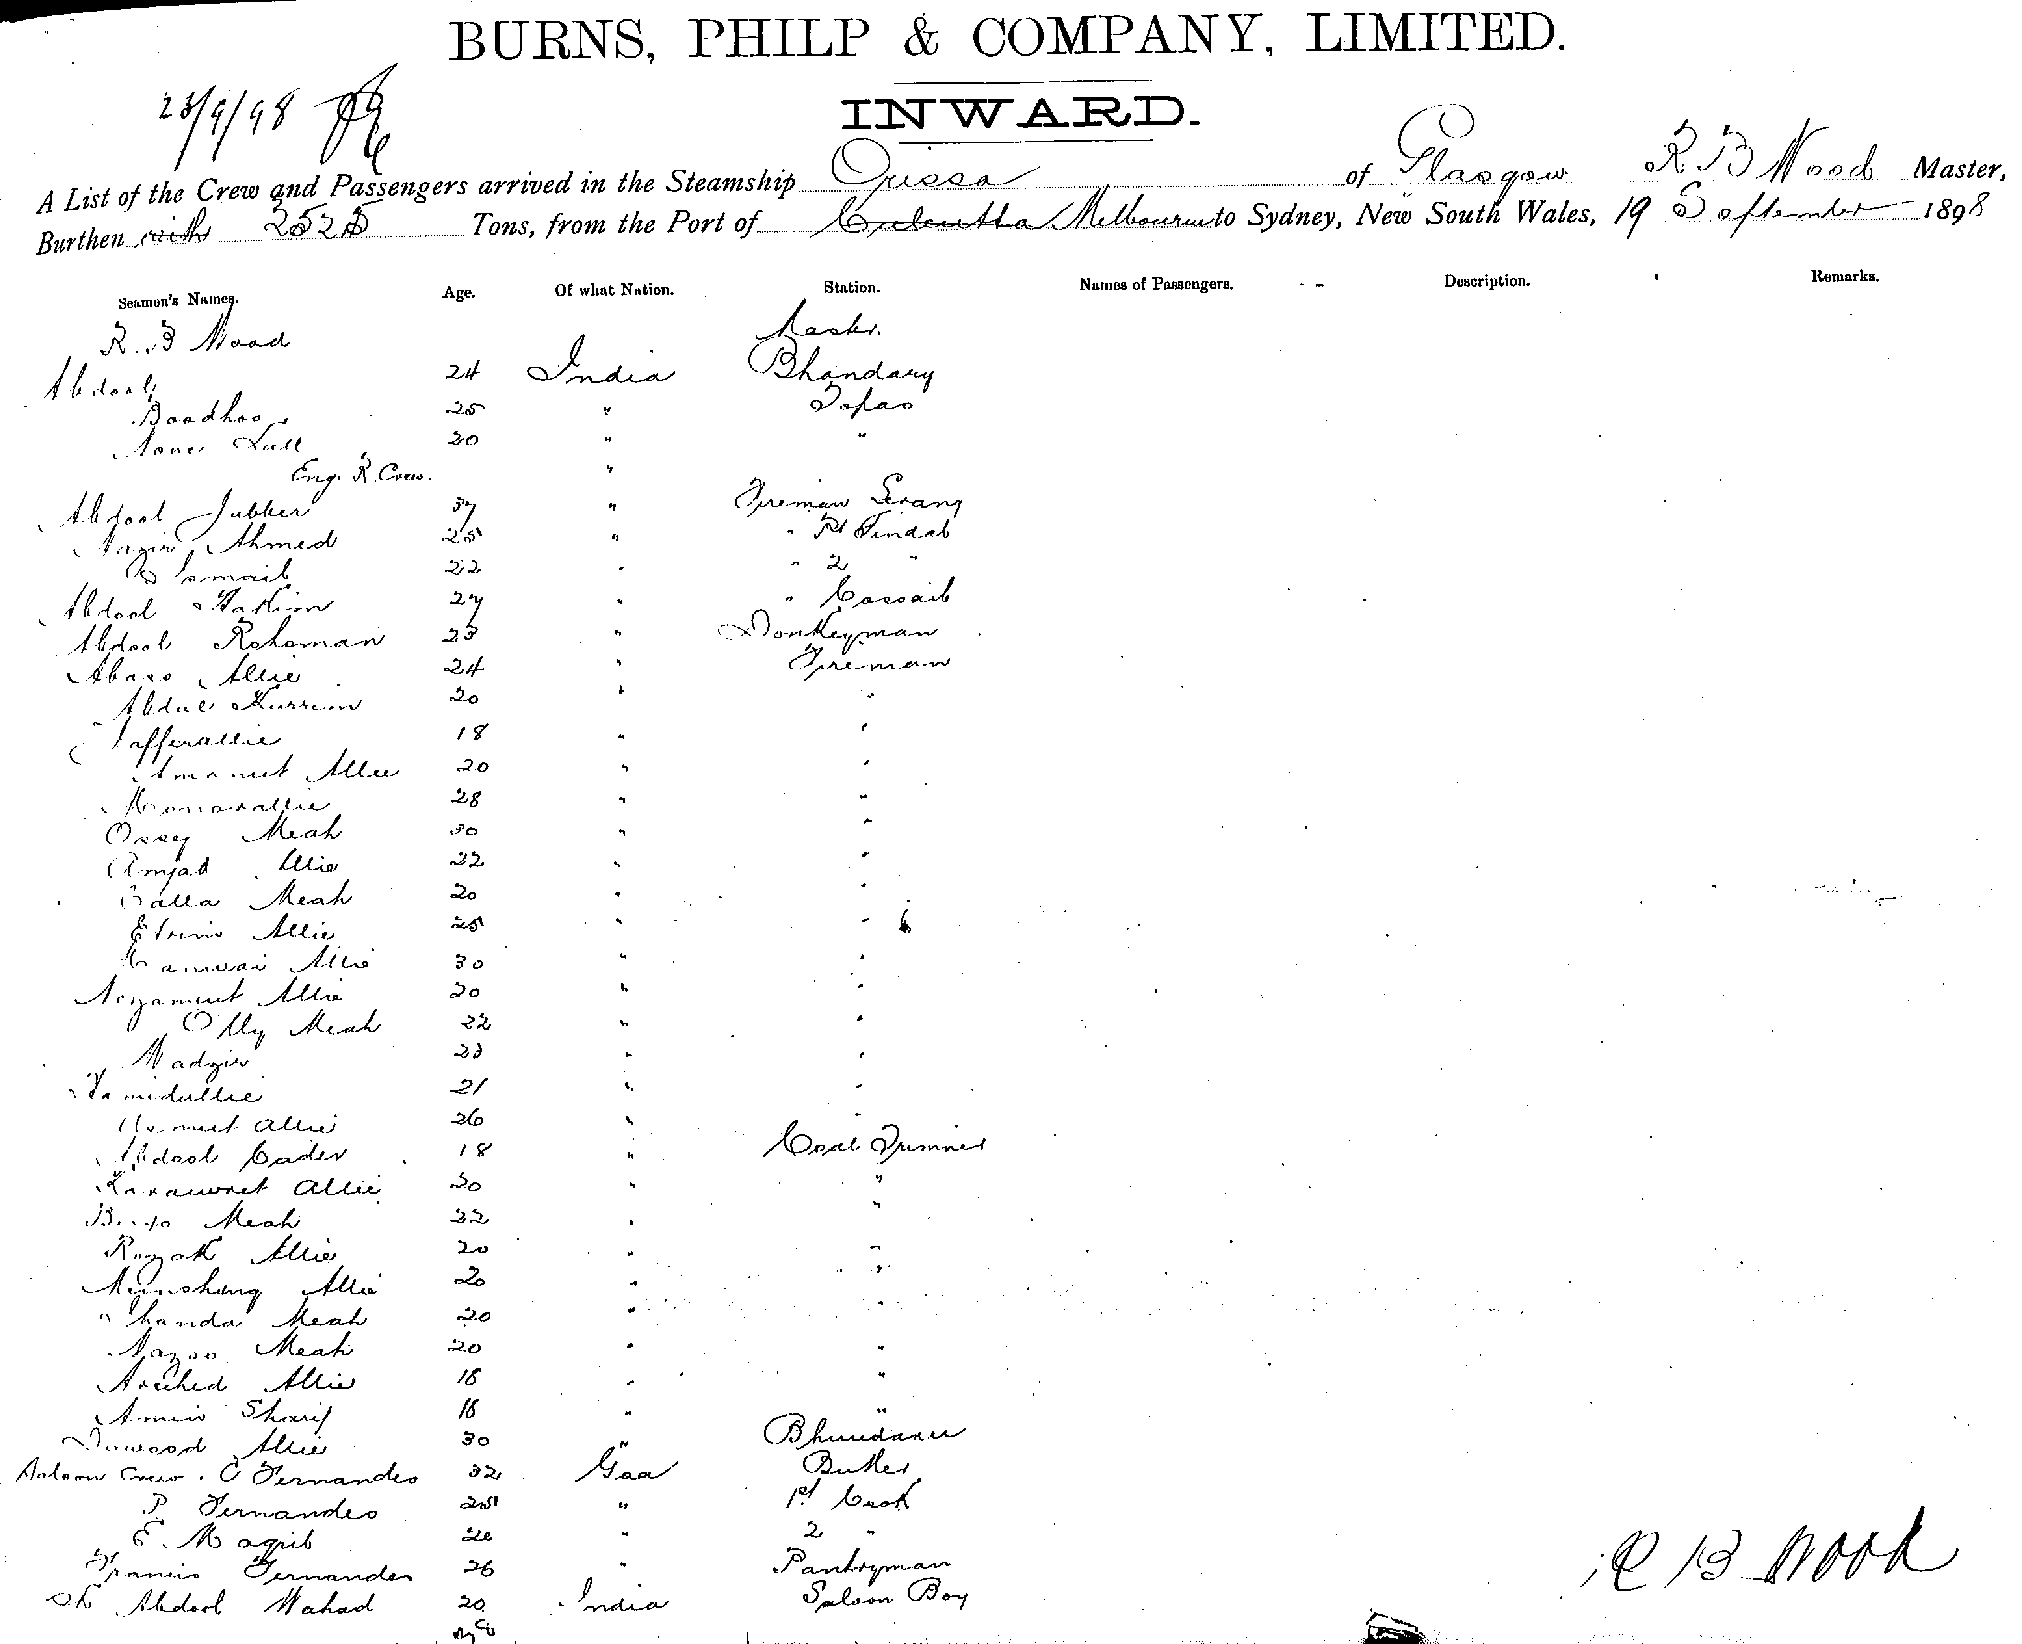 BURNS, PHILP & COMPANY, LIMITED.
23/9/98
INWARD.
A List of the Crew and Passengers arrived in the Steamship Orissa of Glasgow R B Wood Master,
Burthen with 2525 Tons, from the Port of Calcutta Melbourne to Sydney, New South Wales, 19 September 1898
Seamen's Names. Age. Of what Nation. Station. Names of Passengers. Description. Remarks.
R. B Wood Master.
Abdool 24 India Bhandary
Boodhoo 25 " Topas
Lall 20 " "
Eng. R. Crew. "
Abdool Jubber 37 " Fireman Serang
Nazir Ahmed 25 " " 1st Tindal
Ismail 22 " " 2 "
Abdool Hakim 27 " " Cassaib
Abdool Rohoman 23 " Donkeyman
Abass Allie 24 " Fireman
Abdul Kurrim 20 " "
Jafferallie 18 " "
Amanut Allie 20 " "
Monorallie 28 " "
Ossey Meah 30 " "
Amjad Allie 22 " "
Balla Meah 20 " "
Ebrim Allie 25 " "
Allie 30 " "
Nozamut Allie 20 " "
Olly Meah 22 " "
Wadzir 23 " "
Hamidullie 21 " "
Allie 26 " "
Abdool Cader 18 " Coal Trimmer
Allie 30 " "
Meah 22 " "
Rozak Allie 20 " "
Allie 20 " "
Chanda Meah 20 " "
Nazoo Meah 20 " "
Arshed Allie 18 " "
Amir Sharif 18 " "
Dawood Allie 30 " Bhundaree
Saloon Crew. C Fernandes 32 Goa Butler
P. Fernandes 25 " 1st Cook
E. Magrib 20 " 2 "
Francis Fernandes 26 " Pantryman
Sk Abdool Wahad 20 India Saloon Boy
R B Wood